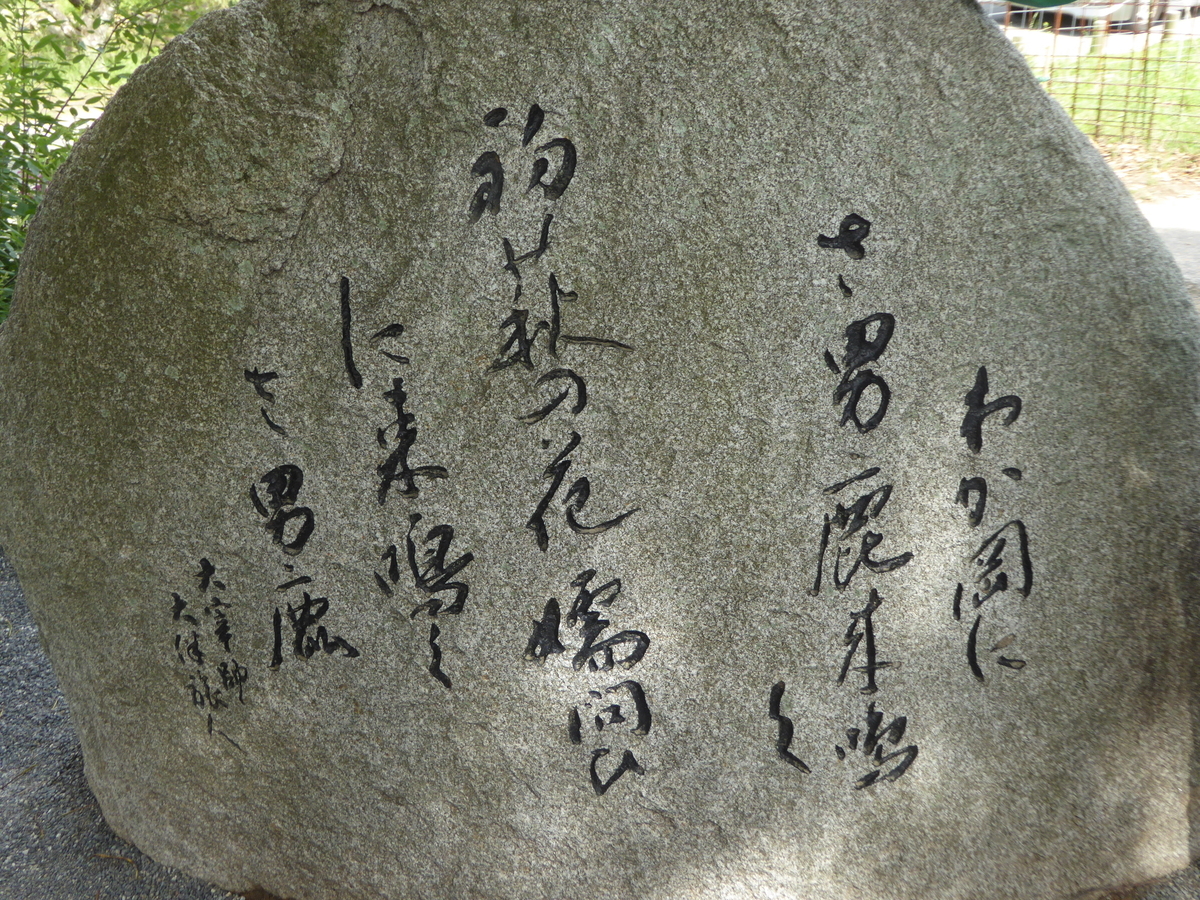 わか岡に
さ男鹿来鳴
く
初萩の花嬬問ひ
に来鳴く
さ男鹿
大宰帥
大伴旅人